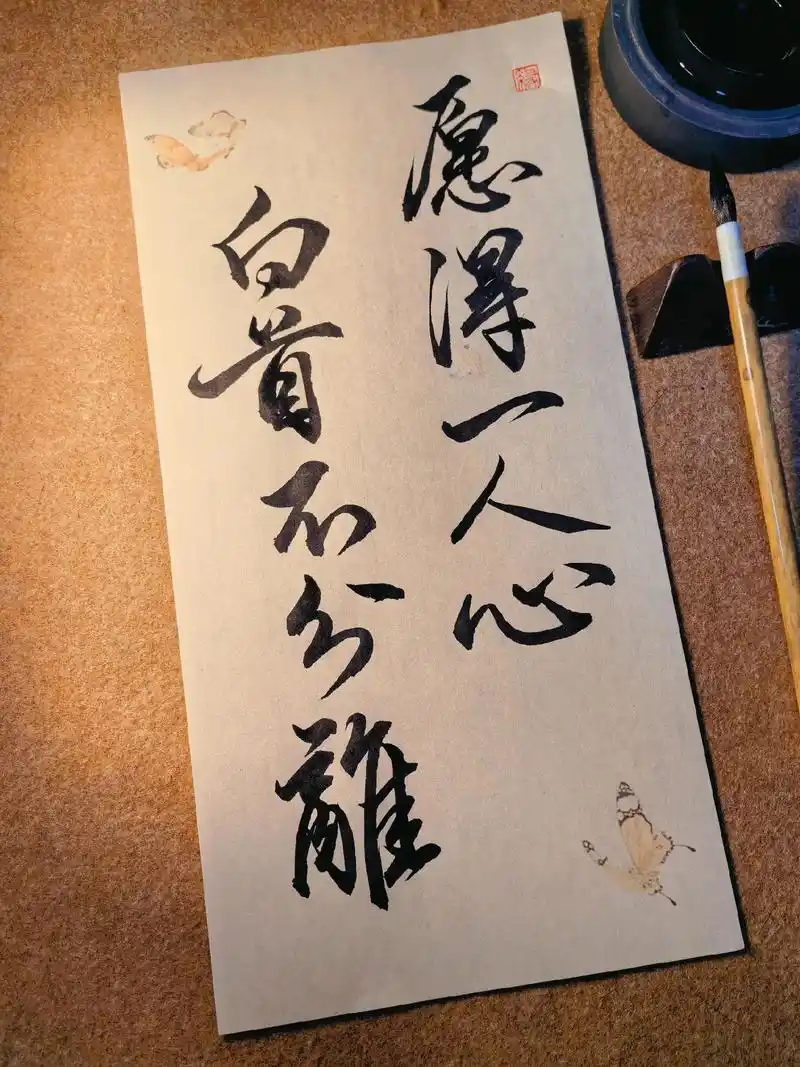 愿得一人心
白首不分離